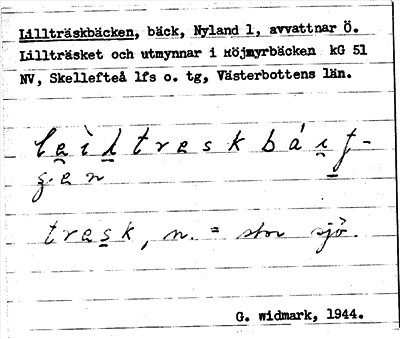 Lillträskbäcken, bäck, Nyland 1, avvattnar Ö.
Lillträsket och utmynnar i Höjmyrbäcken kG 51
NV, Skellefteå lfs o. tg, Västerbottens län.
tresk, n. = stor sjö.
G. widmark, 1944.